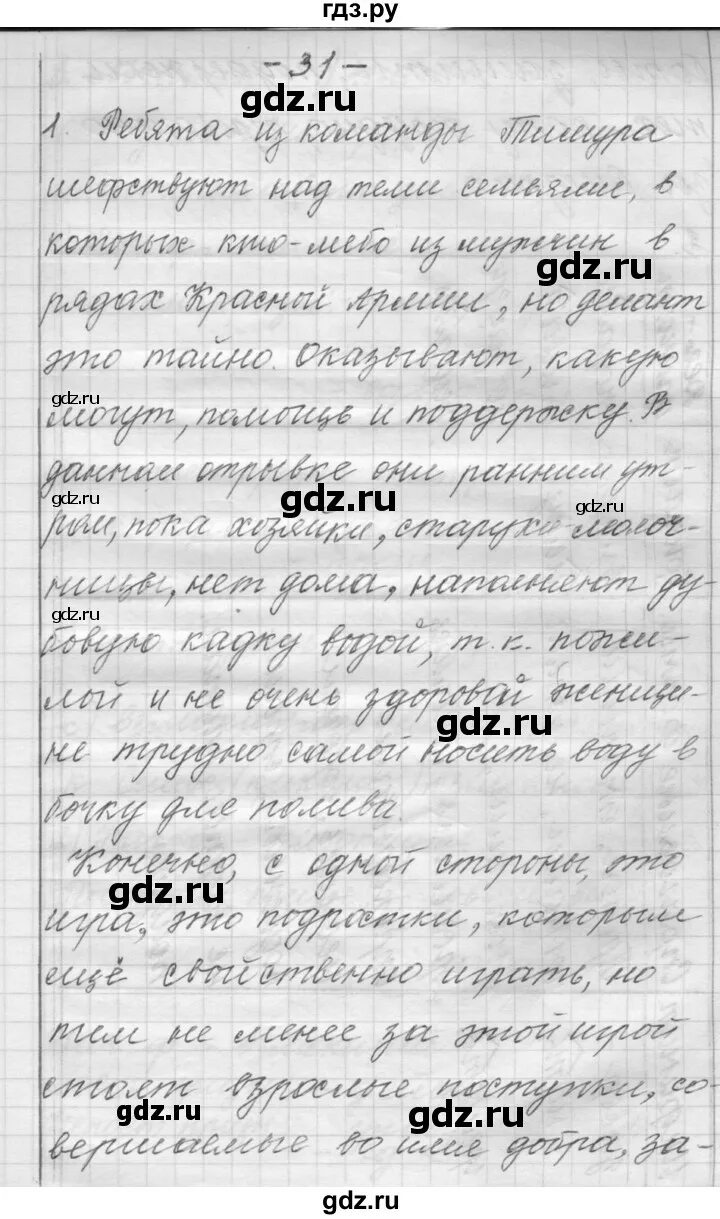 гдз.ру
- 31 -
gdz.ru
1. Ребята из команды Тимура
шефствуют над теми семьями, в
которых кто-либо из мужчин в
gdz.ru
рядах Красной Армии, но делают
это тайно. Оказывают, какую
gdz.ru
могут, помощь и поддержку. В
данном отрывке они ранним ут-
gdz.ru
gdz.ru
gdz.ru
ром, пока хозяйки, старухи молоч-
ницы, нет дома, наполняют ду-
gdz.ru
бовую кадку водой, т.к. пожи-
лой и не очень здоровой женщи-
gdz.ru
не трудно самой носить воду в
бочку для полива.
Конечно, с одной стороны, это
gdz.ru
игра, это подростки, которым
ещё свойственно играть, но
тем не менее за этой игрой
стоят взрослые поступки, со-
gdz.ru
gdz.ru
вершаемые во имя добра, за-
gdz.ru